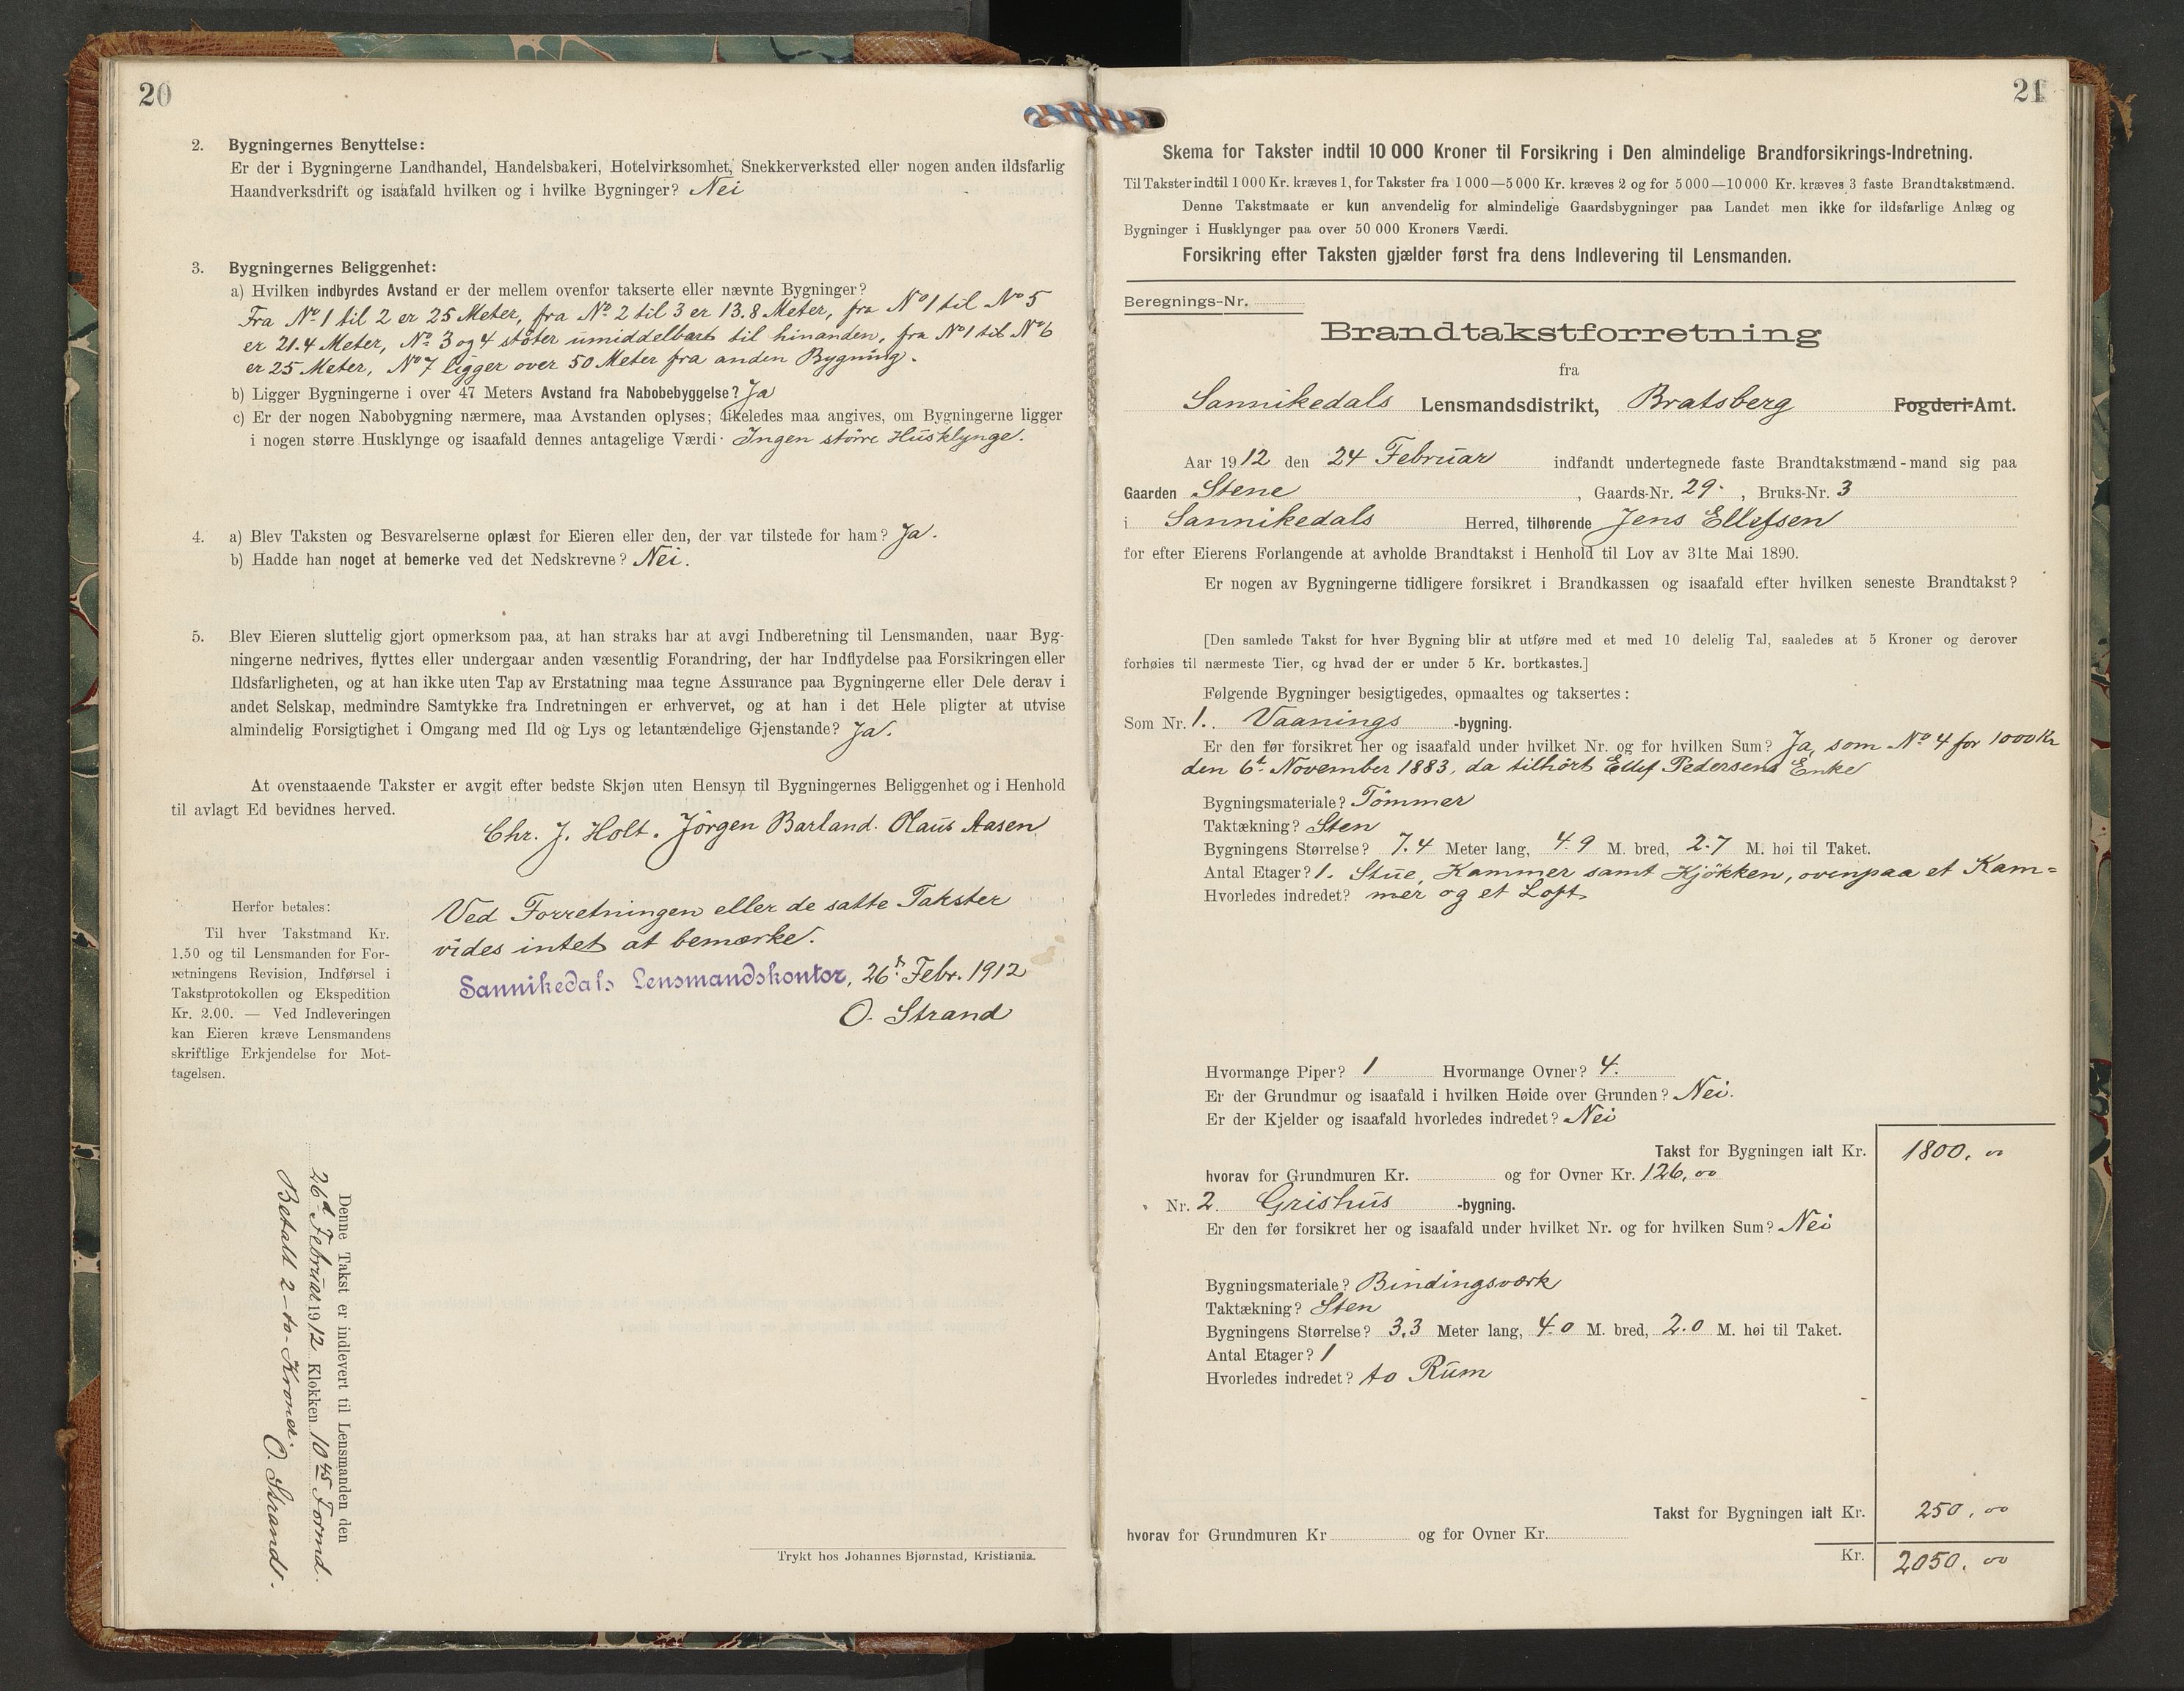 20
2. Bygningernes Benyttelse:
Er der i Bygningerne Landhandel, Handelsbakeri, Hotelvirksomhet, Snekkerverksted eller nogen anden ildsfarlig
Haandverksdrift og isaafald hvilken og i hvilke Bygninger? Nei
3. Bygningernes Beliggenhet:
a) Hvilken indbyrdes Avstand er der mellem ovenfor takserte eller nævnte Bygninger?
Fra No 1 til 2 er 25 Meter, fra No 2 til 3 er 13.8 Meter, fra No 1 til No 5
er 21.4 Meter, No 3 og 4 støter umiddelbart til hinanden, fra No 1 til No 6
er 25 Meter, No 7 ligger over 50 Meter fra anden Bygning.
b) Ligger Bygningerne i over 47 Meters Avstand fra Nabobebyggelse? Ja
c) Er der nogen Nabobygning nærmere, maa Avstanden oplyses; likeledes maa angives, om Bygningerne ligger
i nogen større Husklynge og isaafald dennes antagelige Værdi. Ingen større Husklynge.
4. a) Blev Taksten og Besvarelserne oplæst for Eieren eller den, der var tilstede for ham? Ja.
b) Hadde han noget at bemerke ved det Nedskrevne? Nei.
5. Blev Eieren sluttelig gjort opmerksom paa, at han straks har at avgi Indberetning til Lensmanden, naar Byg-
ningerne nedrives, flyttes eller undergaar anden væsentlig Forandring, der har Indflydelse paa Forsikringen eller
Ildsfarligheten, og at han ikke uten Tap av Erstatning maa tegne Assurance paa Bygningerne eller Dele derav i
andet Selskap, medmindre Samtykke fra Indretningen er erhvervet, og at han i det Hele pligter at utvise
almindelig Forsigtighet i Omgang med Ild og Lys og letantændelige Gjenstande? Ja.
At ovenstaaende Takster er avgit efter bedste Skjøn uten Hensyn til Bygningernes Beliggenhet og i Henhold
til avlagt Ed bevidnes herved.
Chr. J. Holt. Jørgen Barland. Olaus Aasen
Herfor betales:
Til hver Takstmand Kr.
1.50 og til Lensmanden for For-
retningens Revision, Indførsel i
Takstprotokollen og Ekspedition
Kr. 2.00. — Ved Indleveringen
kan Eieren kræve Lensmandens
skriftlige Erkjendelse for Mot-
tagelsen.
Ved Forretningen eller de satte Takster
vides intet at bemærke.
Sannikedals Lensmandskontor, 26d. Febr. 1912
O. Strand
Denne Takst er indlevert til Lensmanden den
26d Februar 1912 Klokken 10 45 Formd.
Betalt 2 - to - Kroner. O. Strand.
Trykt hos Johannes Bjørnstad, Kristiania.
21
Skema for Takster indtil 10 000 Kroner til Forsikring i Den almindelige Brandforsikrings-Indretning.
Til Takster indtil 1000 Kr. kræves 1, for Takster fra 1000—5000 Kr. kræves 2 og for 5000—10000 Kr. kræves 3 faste Brandtakstmænd.
Denne Takstmaate er kun anvendelig for almindelige Gaardsbygninger paa Landet men ikke for ildsfarlige Anlæg og
Bygninger i Husklynger paa over 50 000 Kroners Værdi.
Forsikring efter Taksten gjælder først fra dens Indlevering til Lensmanden.
Beregnings-Nr.
Brandtakstforretning
fra
Sannikedals Lensmandsdistrikt, Bratsberg Fogderi-Amt.
Aar 1912 den 24 Februar indfandt undertegnede faste Brandtakstmænd-mand sig paa
Gaarden Stene, Gaards-Nr. 29., Bruks-Nr. 3
i Sannikedals Herred, tilhørende Jens Ellefsen
for efter Eierens Forlangende at avholde Brandtakst i Henhold til Lov av 31te Mai 1890.
Er nogen av Bygningerne tidligere forsikret i Brandkassen og isaafald efter hvilken seneste Brandtakst?
[Den samlede Takst for hver Bygning blir at utføre med et med 10 delelig Tal, saaledes at 5 Kroner og derover
forhøies til nærmeste Tier, og hvad der er under 5 Kr. bortkastes.]
Følgende Bygninger besigtigedes, opmaaltes og taksertes:
Som Nr. 1. Vaanings -bygning.
Er den før forsikret her og isaafald under hvilket Nr. og for hvilken Sum? Ja, som No 4 for 1000 Kr
den 6t November 1883, da tilhørt Ellef Pedersens Enke
Bygningsmateriale? Tømmer
Taktækning? Sten
Bygningens Størrelse? 7.4 Meter lang, 4.9 M. bred, 2.7 M. høi til Taket.
Antal Etager? 1. Stue, Kammer samt Kjøkken, ovenpaa et Kam=
Hvorledes indredet? mer og et Loft
Hvormange Piper? 1 Hvormange Ovner? 4.
Er der Grundmur og isaafald i hvilken Høide over Grunden? Nei.
Er der Kjelder og isaafald hvorledes indredet? Nei
Takst for Bygningen ialt Kr. 1800,00
hvorav for Grundmuren Kr. og for Ovner Kr. 126,00
Nr. 2. Grishus -bygning.
Er den før forsikret her og isaafald under hvilket Nr. og for hvilken Sum? Nei
Bygningsmateriale? Bindingsværk
Taktækning? Sten
Bygningens Størrelse? 3.3 Meter lang, 4.0 M. bred, 2.0 M. høi til Taket.
Antal Etager? 1
Hvorledes indredet? to Rum
Takst for Bygningen ialt Kr. 250,00
hvorav for Grundmuren Kr og for Ovner Kr.
Kr. 2050,00